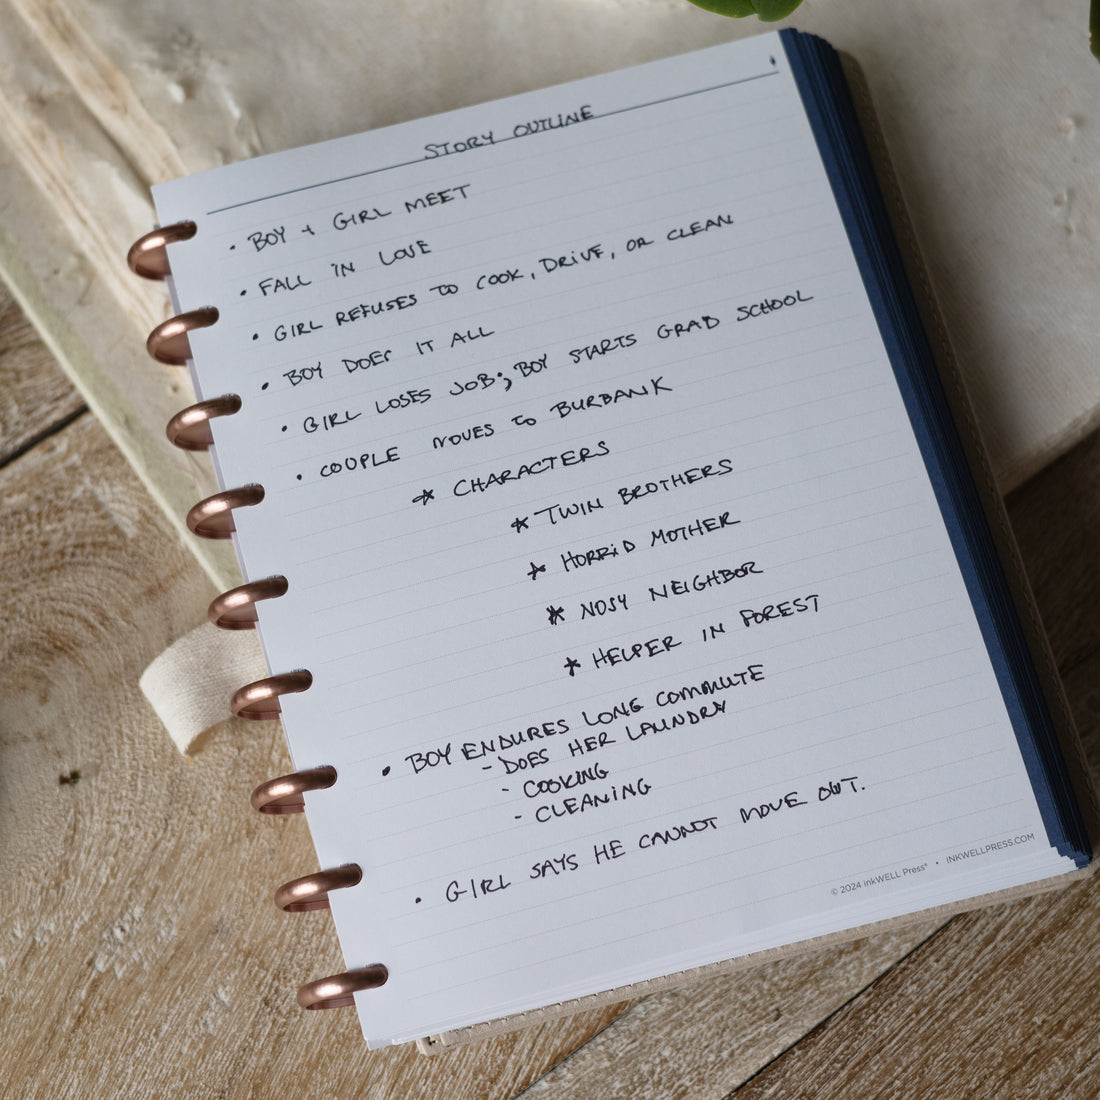 STORY OUTLINE
• BOY + GIRL MEET
• FALL IN LOVE
• GIRL REFUSES TO COOK, DRIVE, OR CLEAN
• BOY DOES IT ALL
• GIRL LOSES JOB; BOY STARTS GRAD SCHOOL
• COUPLE MOVES TO BURBANK
* CHARACTERS
* TWIN BROTHERS
* HORRID MOTHER
* NOSY NEIGHBOR
* HELPER IN FOREST
• BOY ENDURES LONG COMMUTE
- DOES HER LAUNDRY
- COOKING
- CLEANING
• GIRL SAYS HE CANNOT MOVE OUT.
© 2024 inkWELL Press® • INKWELLPRESS.COM